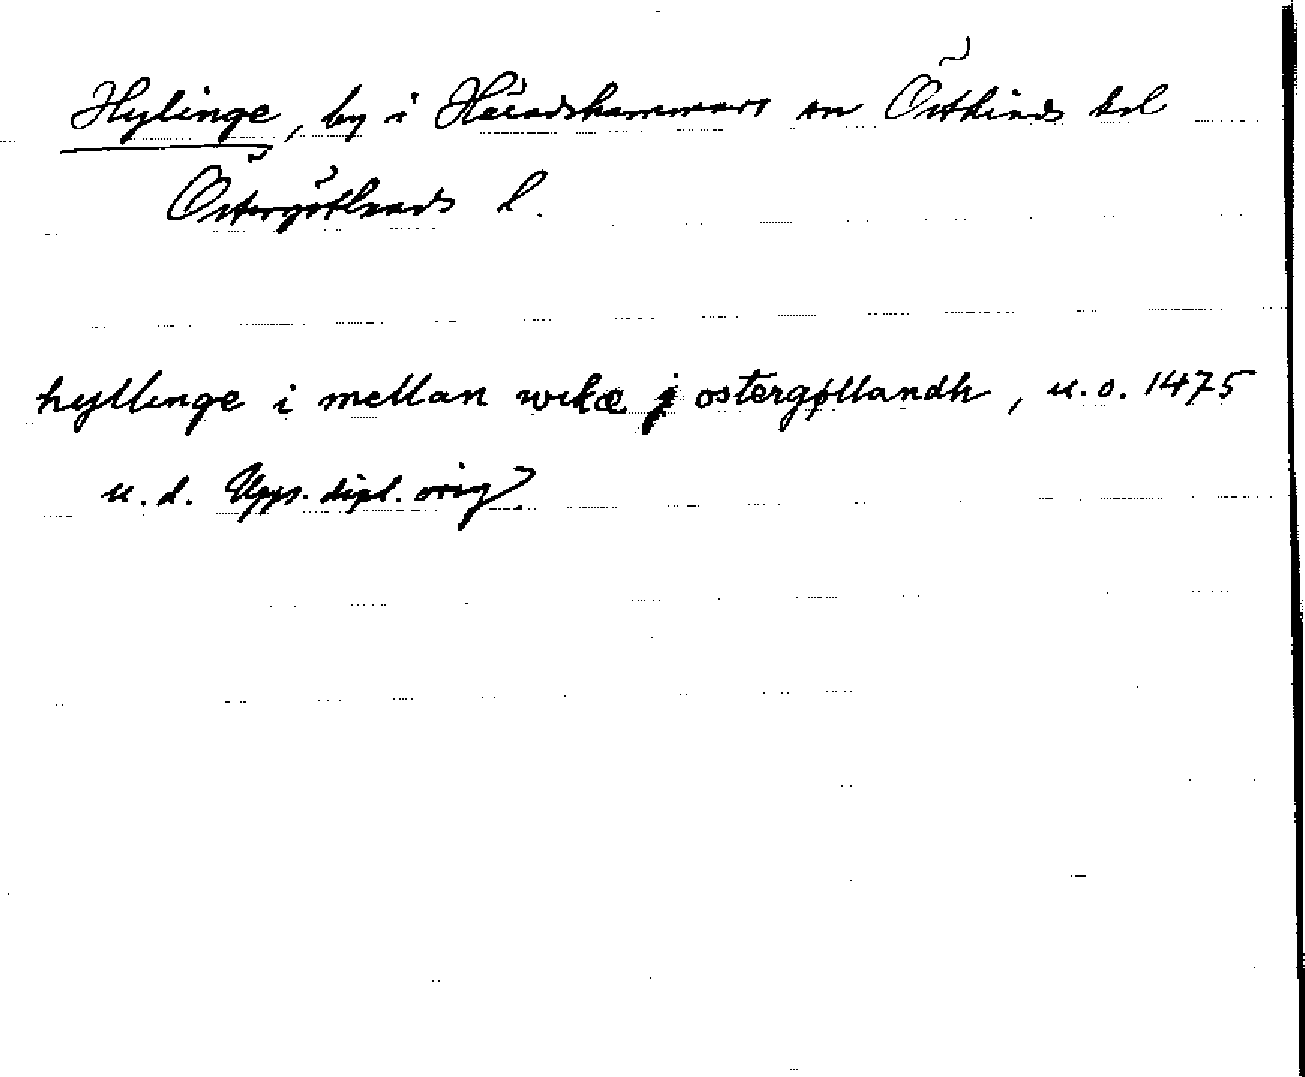 Hylinge, by i Häradshammars sn Östkinds hd
Östergötlands l.
hyllinge i mellan wikæ j ostergøllandh, u.o. 1475
u.d. Upps. dipl. orig.